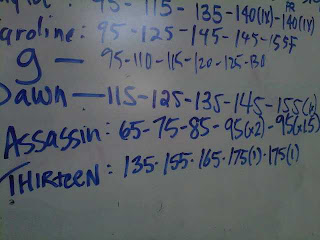 95 - 115 - 135 - 140(1X) - 140(1X) PR
aroline: 95 - 125 - 145 - 145 - 155F
g — 95 - 110 - 115 - 120 - 125 - 130
Dawn — 115 - 125 - 135 - 145 - 155
Assassin: 65 - 75 - 85 - 95(x2) - 95(x1.5)
THIRteeN: 135 - 155 - 165 - 175(1) - 175(1)